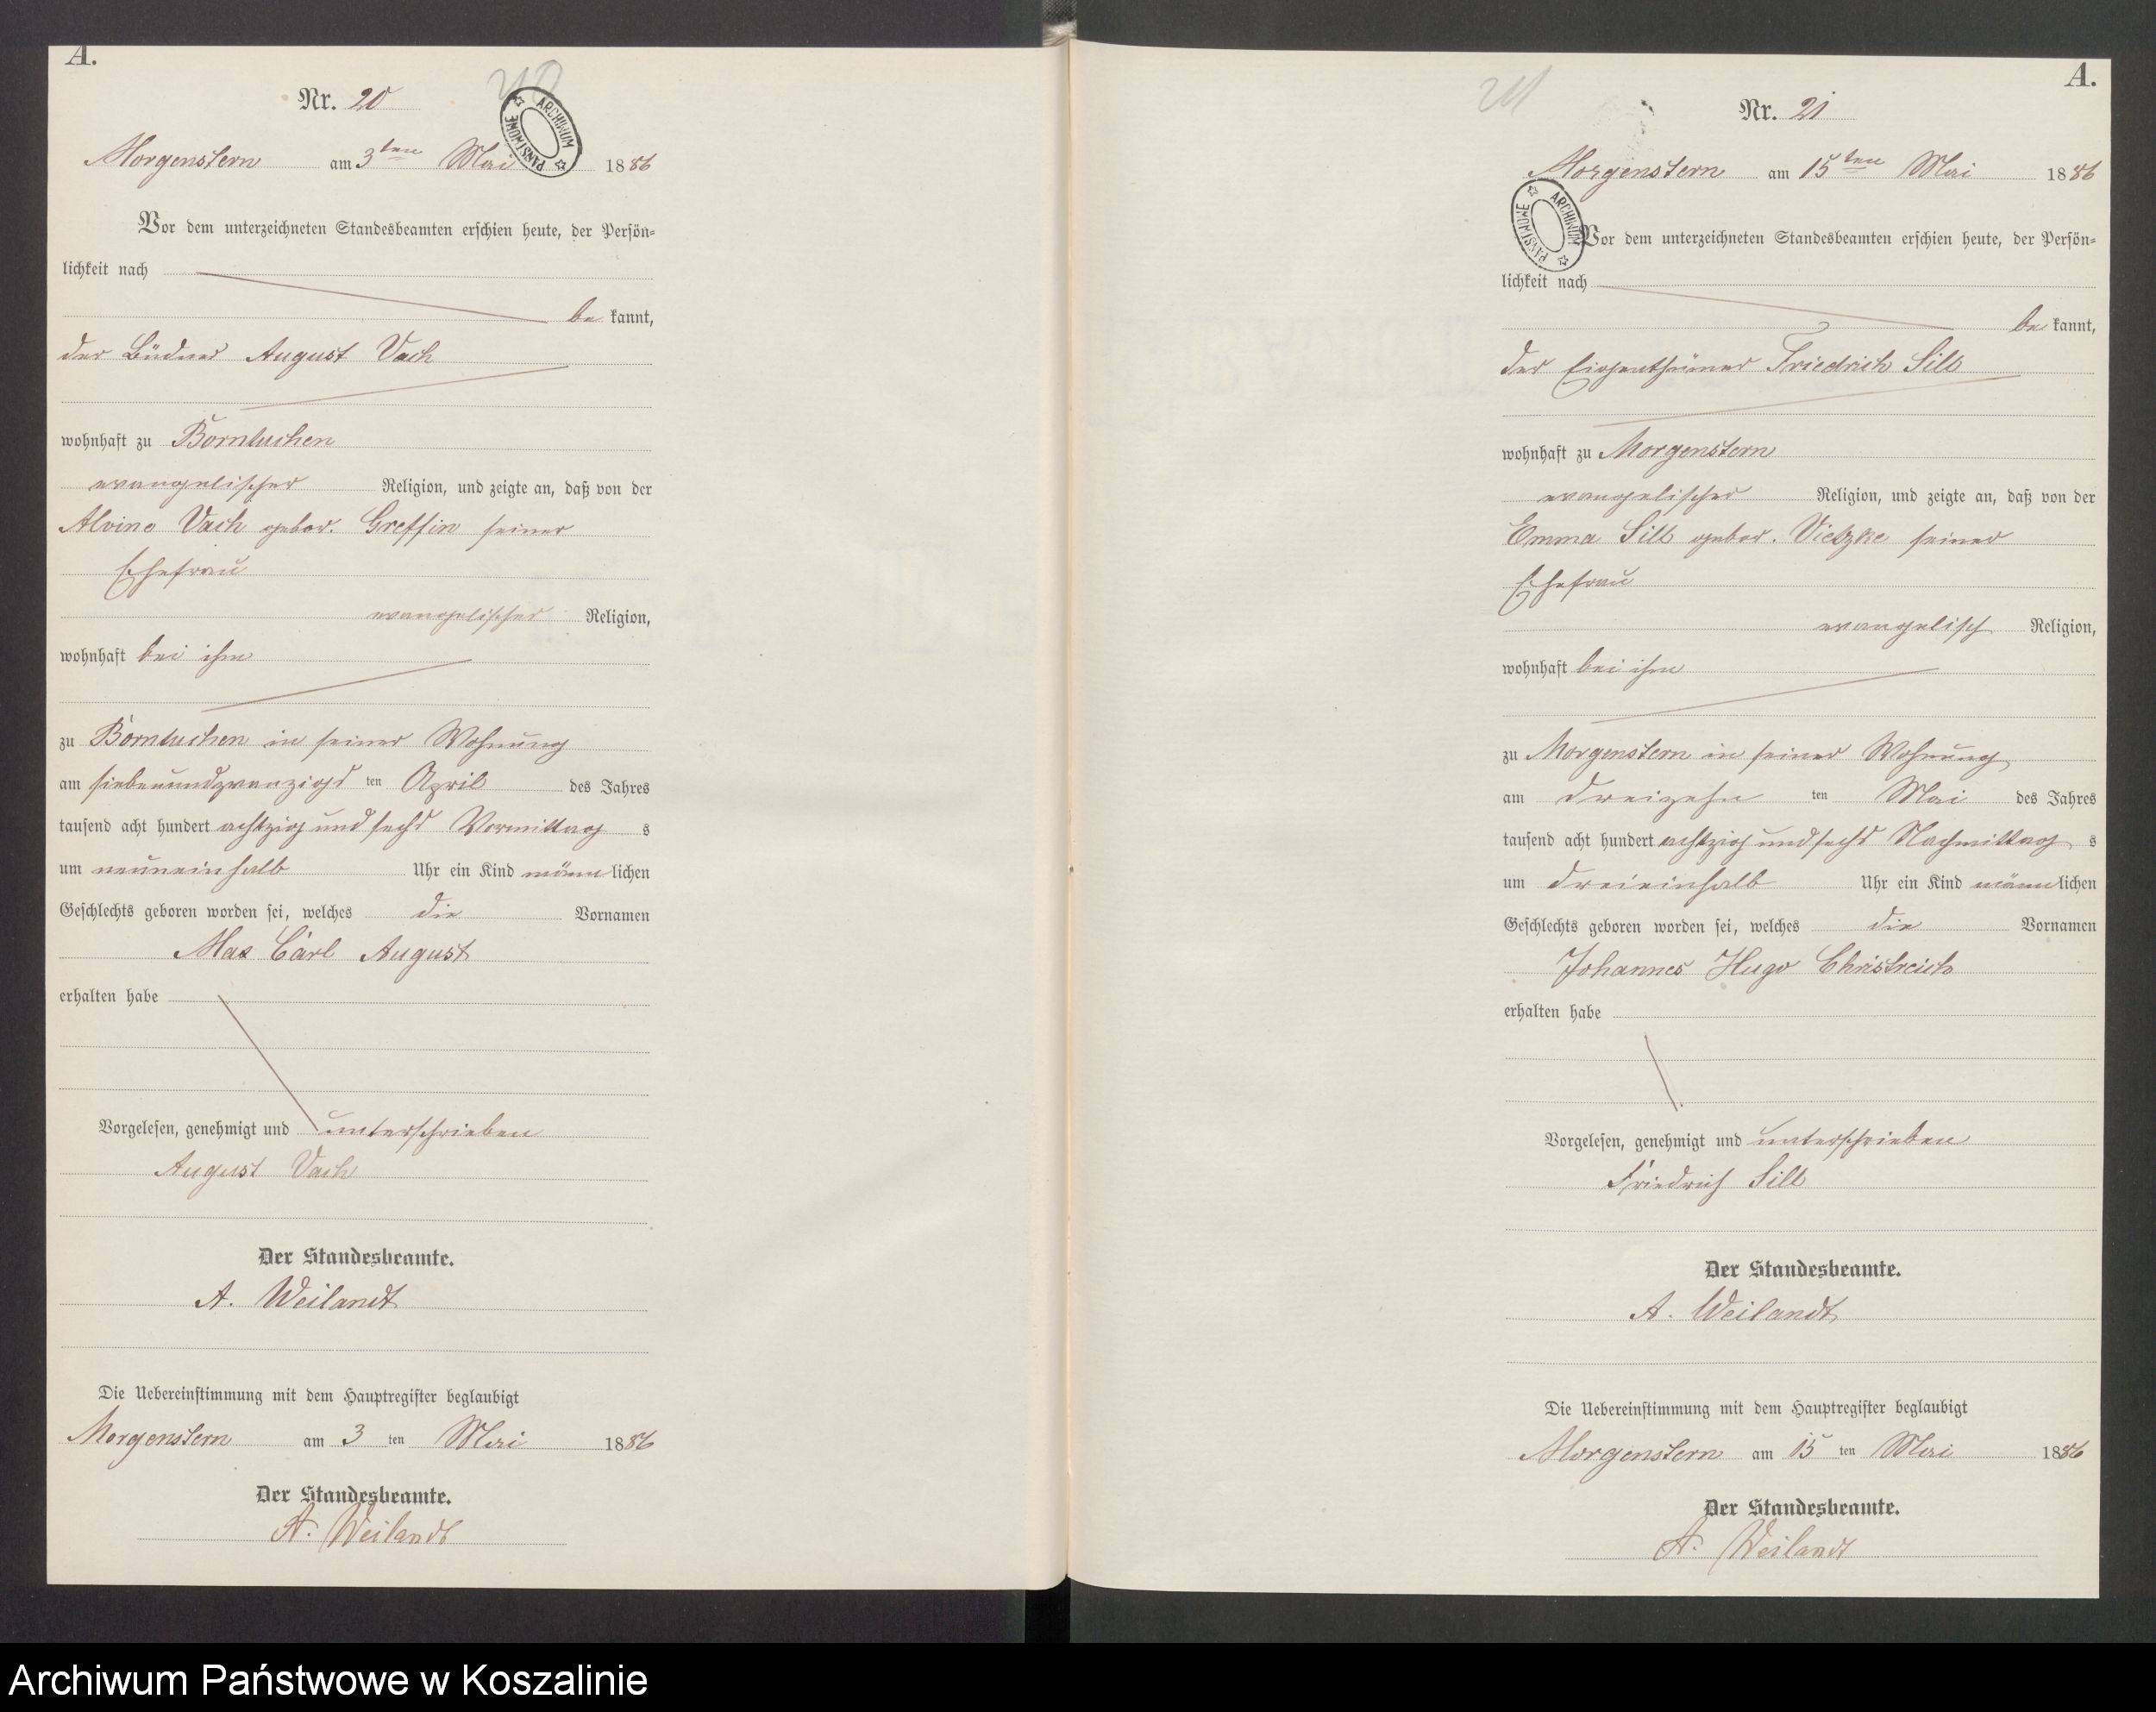 A.
Nr. 20
Morgenstern am 3ten Mai 1886
Vor dem unterzeichneten Standesbeamten erschien heute, der Persön=
lichkeit nach
be kannt,
der Büdner August Vach
wohnhaft zu Borntuchen
evangelischer Religion, und zeigte an, daß von der
Alvine Vach gebor. Greffin seiner
Ehefrau
evangelischer Religion,
wohnhaft bei ihm
zu Borntuchen in seiner Wohnung
am siebenundzwanzigs ten April des Jahres
tausend acht hundert achtzig und sechs Vormittag s
um neuneinhalb Uhr ein Kind männ lichen
Geschlechts geboren worden sei, welches die Vornamen
Max Carl August
erhalten habe
Vorgelesen, genehmigt und unterschrieben
August Vach
Der Standesbeamte.
A. Weilandt
Die Uebereinstimmung mit dem Hauptregister beglaubigt
Morgenstern am 3 ten Mai 1886
Der Standesbeamte.
A. Weilandt
ARCHIWUM PAŃSTWOWE
A.
211
Nr. 21
Morgenstern am 15ten Mai 1886
ARCHIWUM PAŃSTWOWE
Vor dem unterzeichneten Standesbeamten erschien heute, der Persön=
lichkeit nach
be kannt,
der Eigenthümer Friedrich Sill
wohnhaft zu Morgenstern
evangelischer Religion, und zeigte an, daß von der
Emma Sill gebor. Vietzke seiner
Ehefrau
evangelisch Religion,
wohnhaft bei ihm
zu Morgenstern in seiner Wohnung
am dreizehn ten Mai des Jahres
tausend acht hundert achtzig und sechs Nachmittag s
um dreieinhalb Uhr ein Kind männ lichen
Geschlechts geboren worden sei, welches die Vornamen
Johannes Hugo Christreich
erhalten habe
Vorgelesen, genehmigt und unterschrieben
Friedrich Sill
Der Standesbeamte.
A. Weilandt
Die Uebereinstimmung mit dem Hauptregister beglaubigt
Morgenstern am 15 ten Mai 1886
Der Standesbeamte.
A. Weilandt
Archiwum Państwowe w Koszalinie